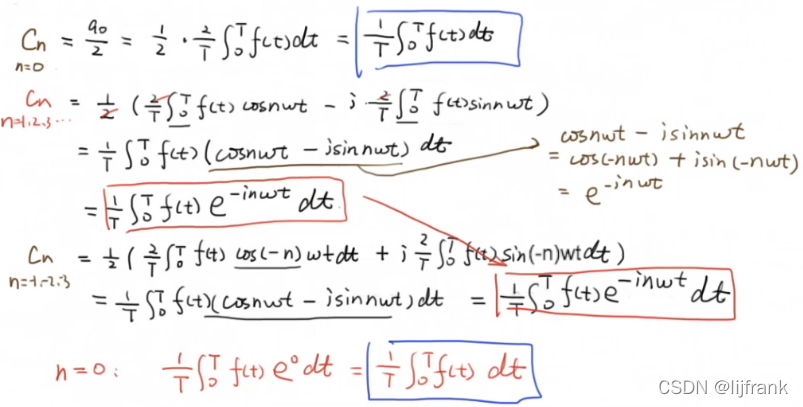 Cn = a0/2 = 1/2 · 2/T ∫₀ᵀ f(t)dt = 1/T ∫₀ᵀ f(t)dt
n=0
Cn = 1/2 (2/T ∫₀ᵀ f(t) cosnwt - i · 2/T ∫₀ᵀ f(t)sinnwt)
n=1,2,3...
= 1/T ∫₀ᵀ f(t)(cosnwt - isinnwt) dt
cosnwt - isinnwt
= cos(-nwt) + isin(-nwt)
= e^-inwt
= 1/T ∫₀ᵀ f(t) e^-inwt dt
Cn = 1/2 (2/T ∫₀ᵀ f(t) cos(-n)wtdt + i 2/T ∫₀ᵀ f(t)sin(-n)wtdt)
n=-1,-2,-3
= 1/T ∫₀ᵀ f(t)(cosnwt - isinnwt)dt = 1/T ∫₀ᵀ f(t)e^-inwt dt
n=0: 1/T ∫₀ᵀ f(t) e⁰dt = 1/T ∫₀ᵀ f(t) dt
CSDN @lijfrank